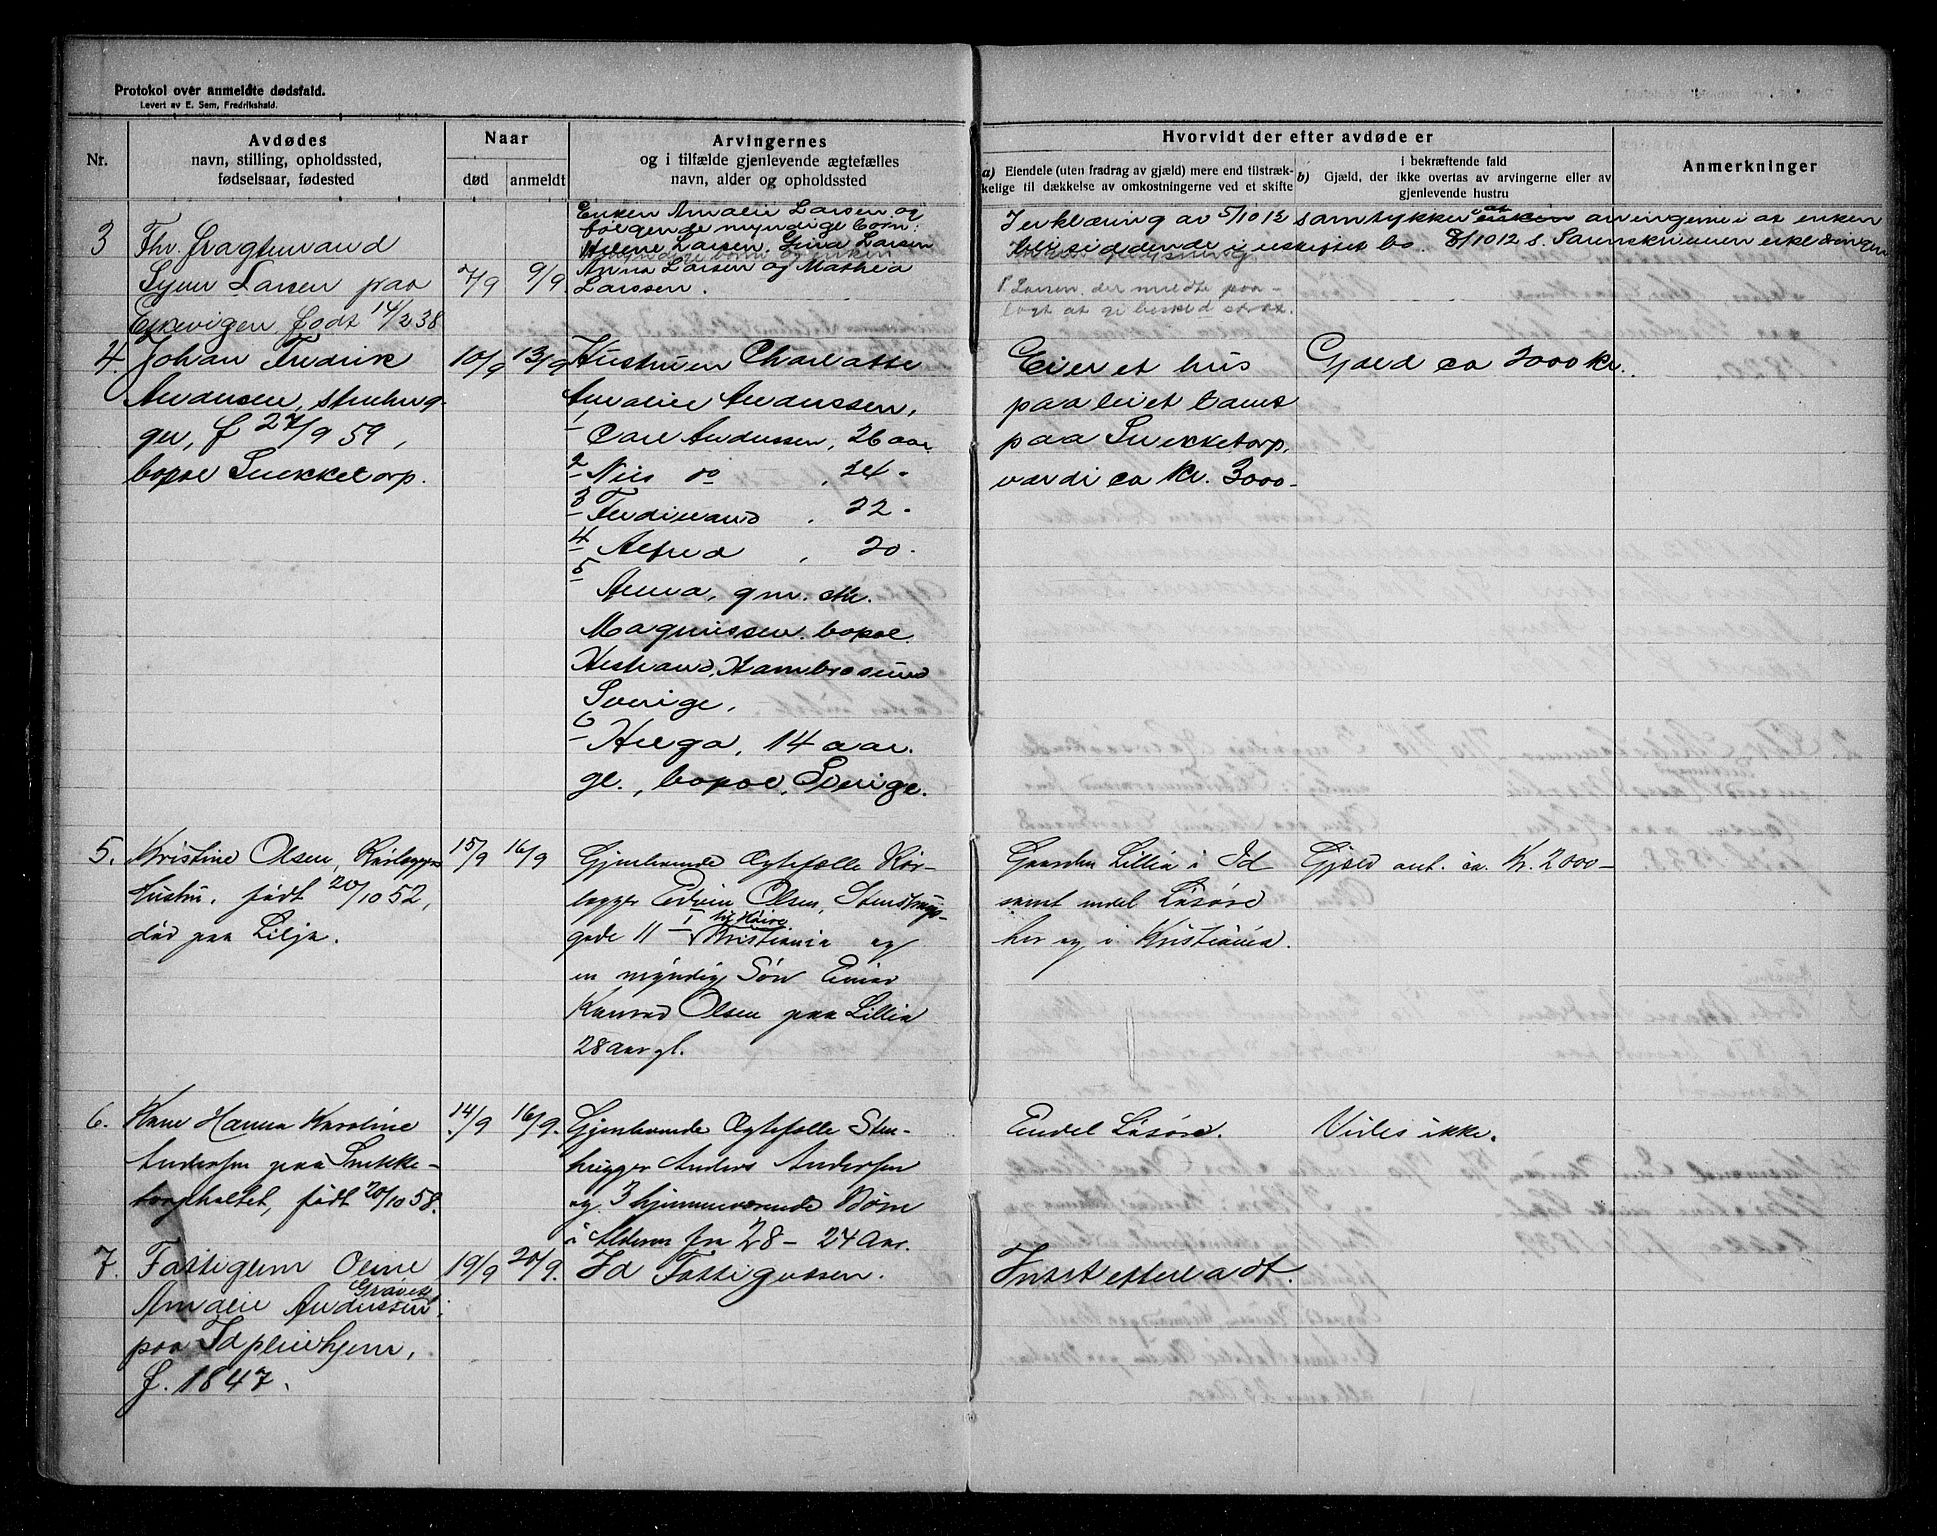 Protokol over anmeldte dødsfald.
Levert av E. Sem, Fredrikshald.
Nr.
Avdødes
navn, stilling, opholdssted,
fødselsaar, fødested
Naar
død
anmeldt
Arvingernes
og i tilfælde gjenlevende ægtefælles
navn, alder og opholdssted
Hvorvidt der efter avdøde er
a) Eiendele (uten fradrag av gjæld) mere end tilstræk-
kelige til dækkelse av omkostningerne ved et skifte
i bekræftende fald
b) Gjæld, der ikke overtas av arvingerne eller av
gjenlevende hustru
Anmerkninger
3
Fhv. fragtemand
Syver Larsen paa
født 14/2 38
7/9
9/9
Enken Amalie Larsen og
følgende myndige børn:
Helene Larsen, Gina Larsen
Anna Larsen og Mathea
Larssen.
I erklæring av 5/10 12 samtykker arvingerne i at enken
blir siddende i uskiftet bo. 8/10 12 s.
Larsen, der meldte paa-
lagt at gi besked straks.
4.
Johan Fredrik
Andersen, stenhug-
ger, f 27/9 59,
bopæl Snekketorp.
10/9
13/9
Hustruen Charlotte
Amalie Anderssen,
1 Carl Anderssen, 26 aar
2 Nils do , 24 -
3 Ferdinand , 22 -
4 Alfred , 20 -
5
Anna, gm. Chr.
Magnussen. bopæl
Hestrand, Hambrosund
Sverige,
6
Helga, 14 aar.
gl., bopæl, Sverige.
Eier et hus
paa leiet tomt
paa Snekketorp,
værdi ca kr. 3000-
Gjæld ca 2000 kr.
5.
Kristine Olsen,
hustru, født 20/10 52,
død paa Lilja.
15/9
16/9
Gjenlevende Ægtefælle Rør-
lægger Edvin Olsen, Stenstrups-
gade 11 I til Høire
Kristiania og
en myndig Søn Einar
Konrad Olsen paa Lillia
28 Aar gl.
Gaarden Lillia i Id
samt endel Løsøre
her og i Kristiania.
Gjæld ant. ca. Kr. 2000-
6.
Kone Hanna Karoline
Andersen paa Snekke-
torpholtet, født 20/10 58.
14/9
16/9.
Gjenlevende Ægtefælle Sten-
hugger Anders Andersen
og 3 hjemmeværende Børn
i Alderen fra 28 - 24 Aar.
Endel Løsøre.
Vides ikke.
7.
Fattiglem Oline
Amalie Anderssen,
paa Id pleiehjem,
f. 1847.
19/9
20/9.
Id Fattigvæsen.
Intet efterladt.